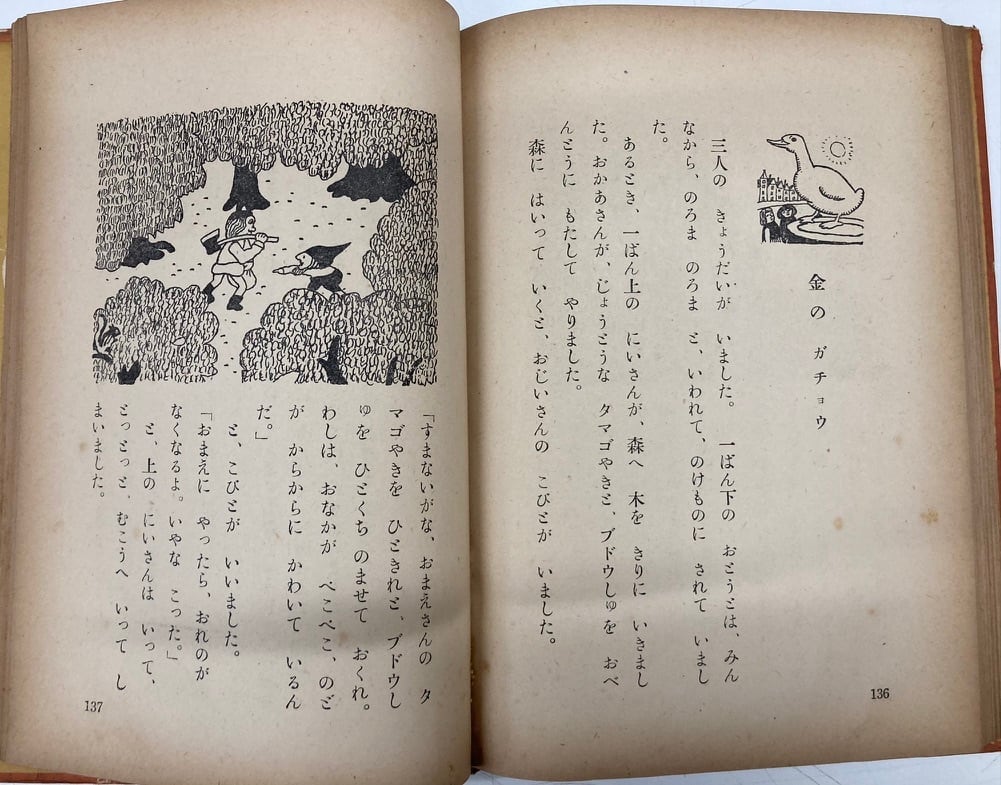 金の ガチョウ
三人の きょうだいが いました。 一ばん下の おとうとは、みん
なから、のろま のろま と、いわれて、のけものに されて いまし
た。
あるとき、一ばん上の にいさんが、森へ 木を きりに いきまし
た。おかあさんが、じょうとうな タマゴやきと、ブドウしゅを おべ
んとうに もたして やりました。
森に はいって いくと、おじいさんの こびとが いました。
136
「すまないがな、おまえさんの タ
マゴやきを ひときれと、ブドウし
ゅを ひとくち のませて おくれ。
わしは、おなかが ぺこぺこ、のど
が からからに かわいて いるん
だ。」
と、こびとが いいました。
「おまえに やったら、おれのが
なくなるよ。いやな こった。」
と、上の にいさんは いって、
とっとと、むこうへ いって し
まいました。
137